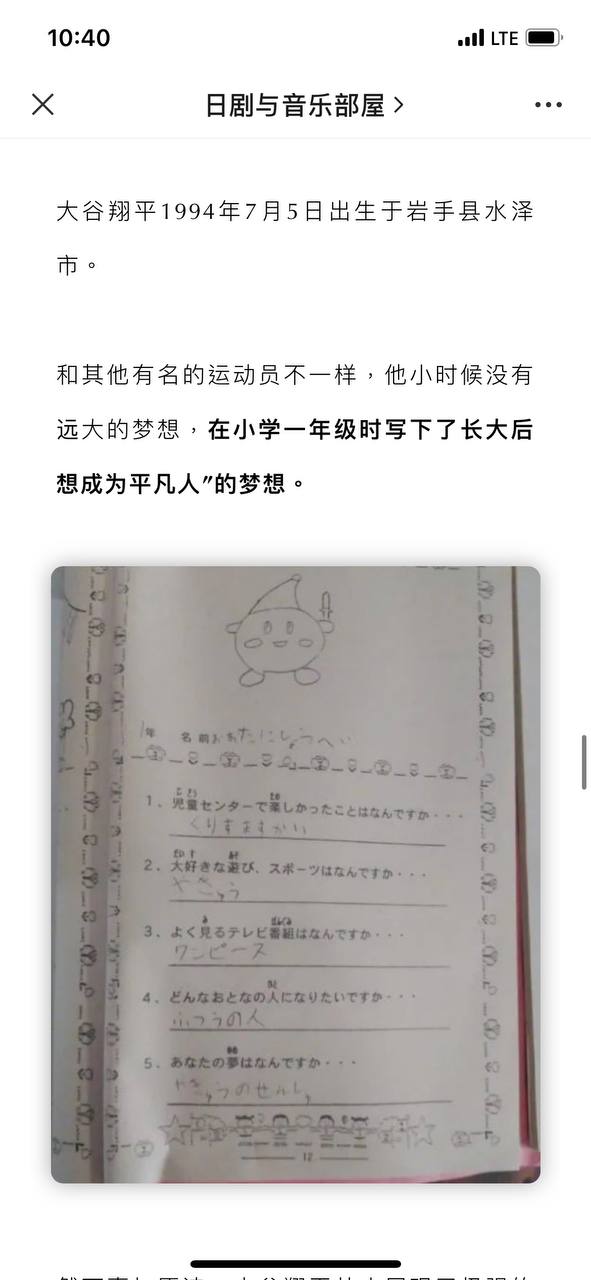 10:40
LTE
日剧与音乐部屋
大谷翔平1994年7月5日出生于岩手县水泽
市。
和其他有名的运动员不一样，他小时候没有
远大的梦想，在小学一年级时写下了长大后
想成为平凡人”的梦想。
1年 名前 おおたにしょうへい
1．児童センターで楽しかったことはなんですか・・・
くりすますかい
2．大好きな遊び、スポーツはなんですか・・・
やきゅう
3．よく見るテレビ番組はなんですか・・・
ワンピース
4．どんなおとなの人になりたいですか・・・
ふつうの人
5．あなたの夢はなんですか・・・
やきゅうのせんしゅ
12